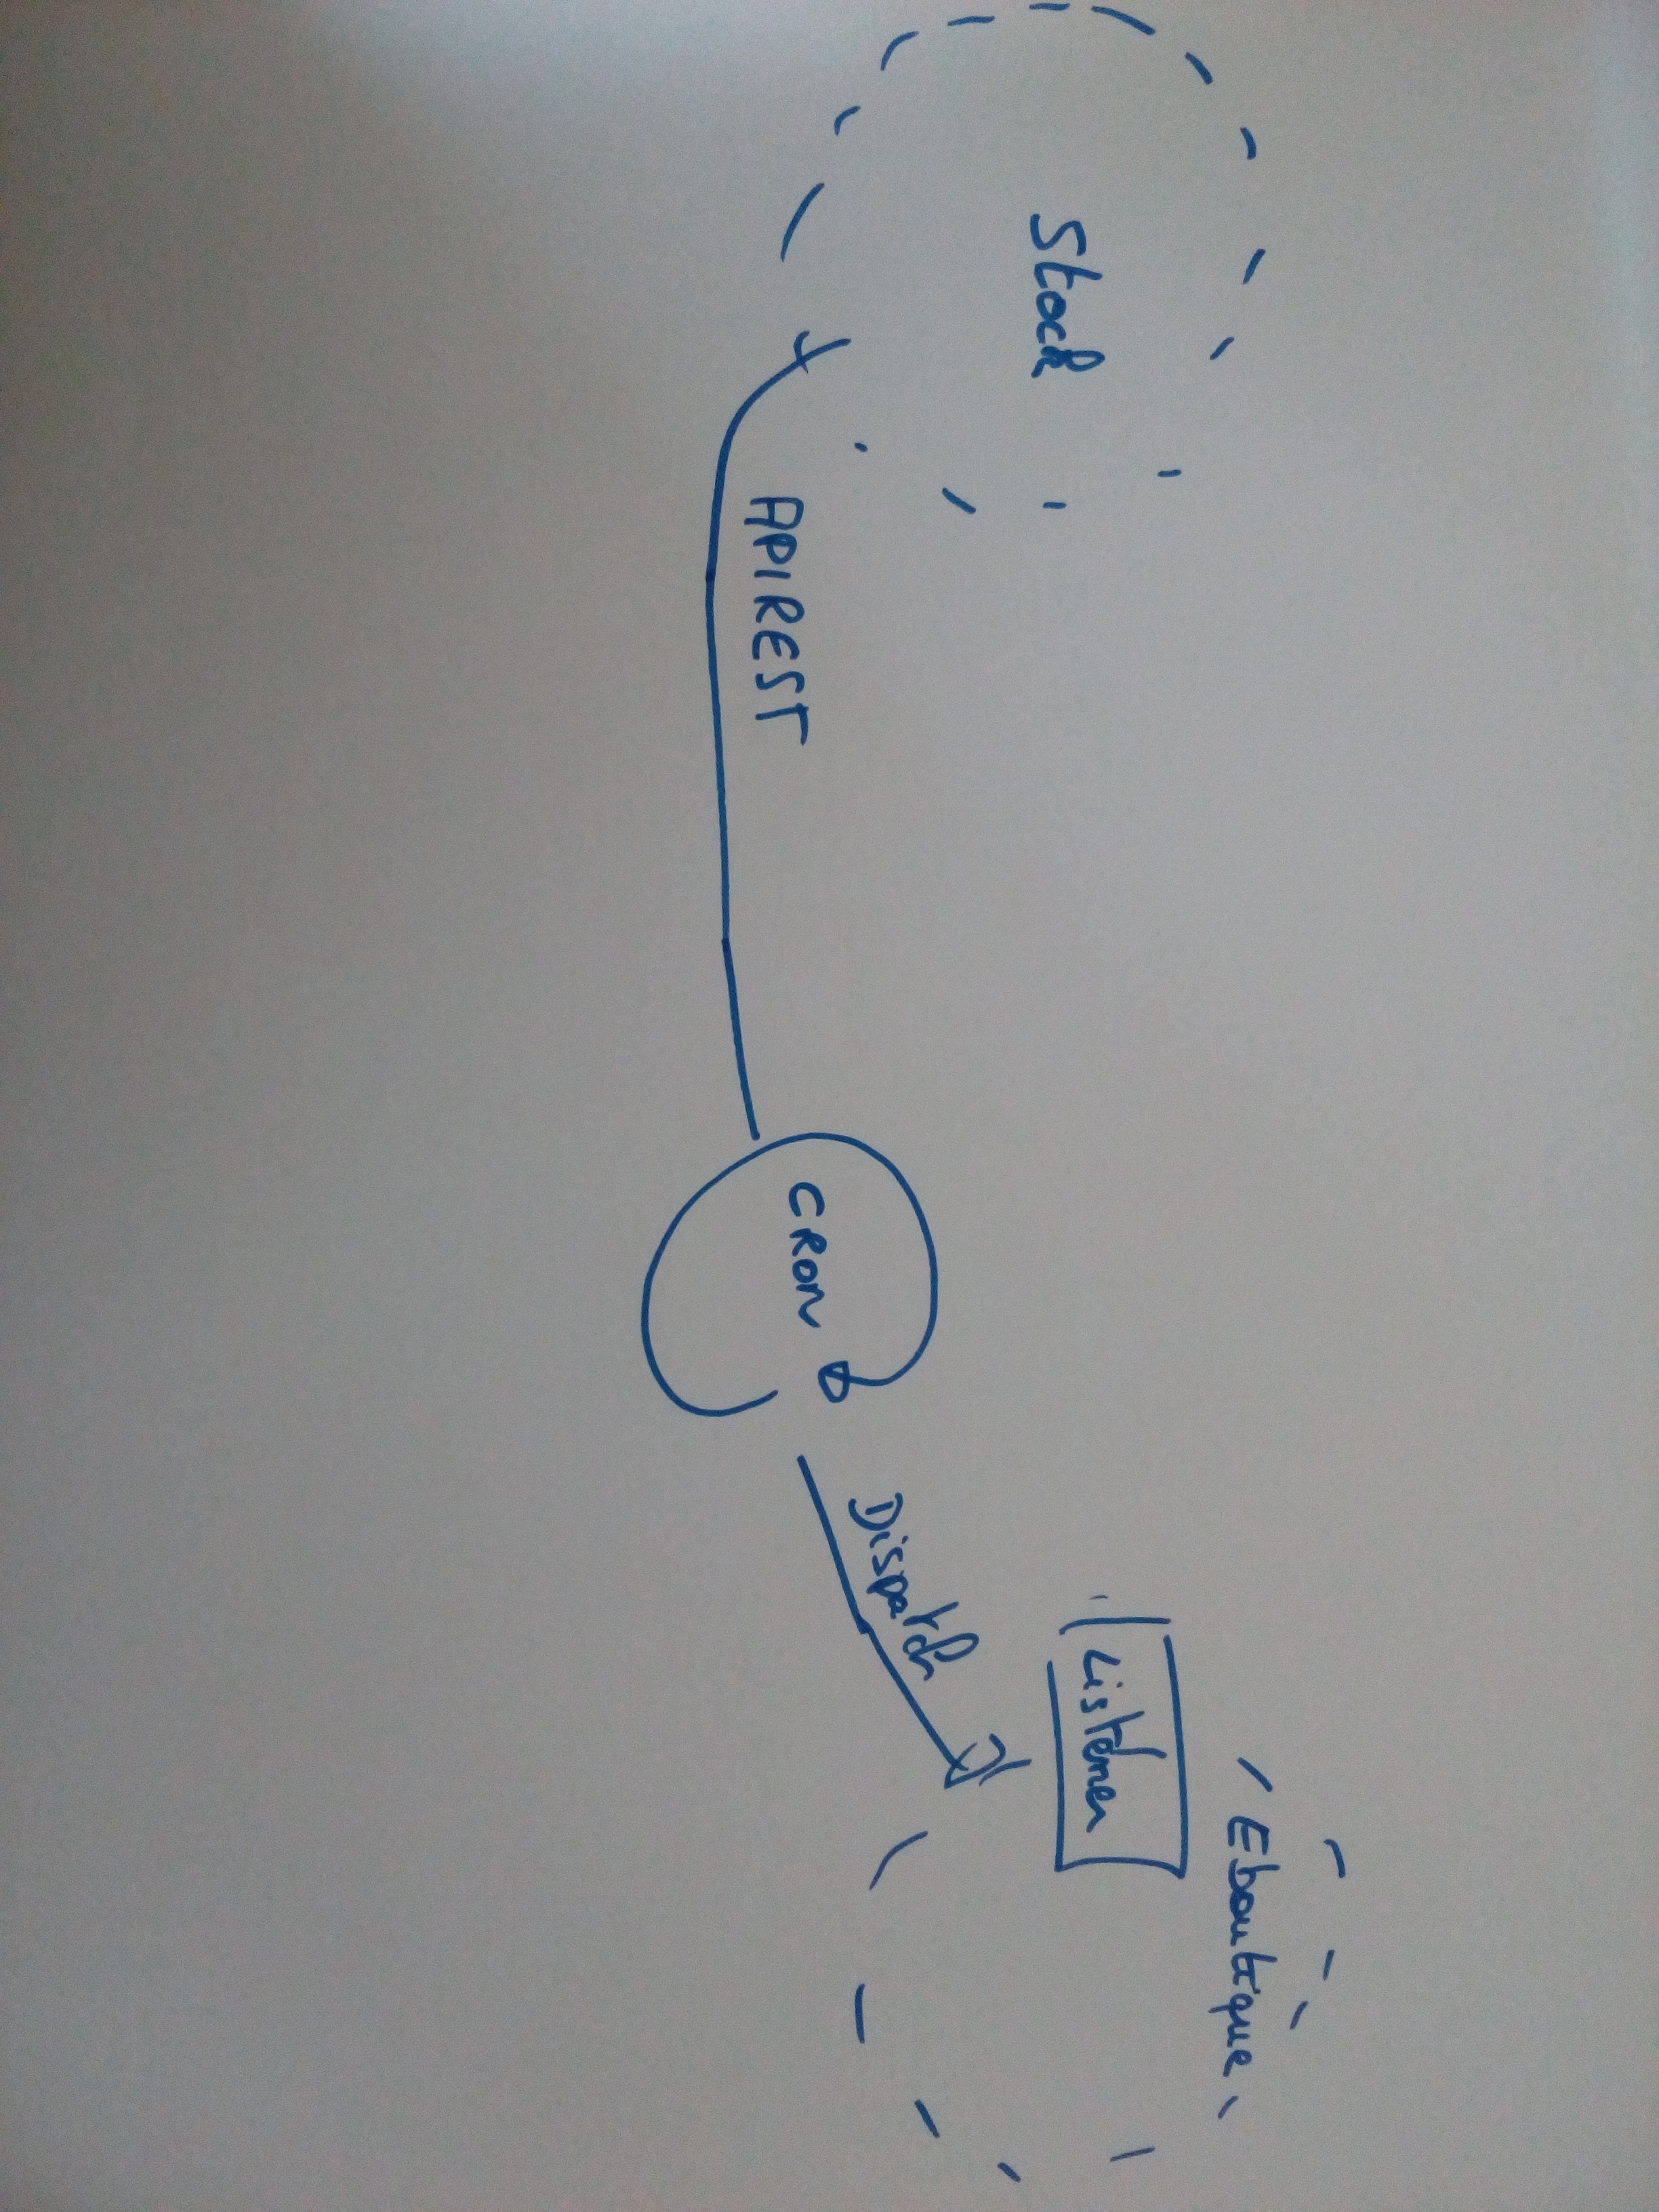 Stock
APIREST
CRON
Dispatch
Listener
Eboutique